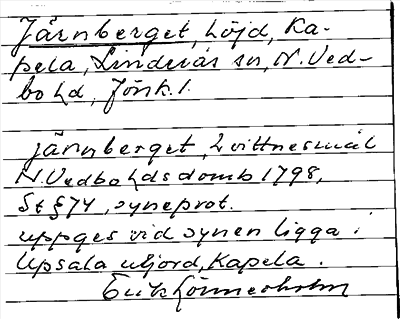 Järnberget, höjd, Ka-
pela, Linderås sn, N. Ved-
bo hd, Jönk. l.
Järnberget, 2 vittnesmål
N. Vedbo hds domb 1798,
St § 74, syneprot.
uppges vid synen ligga i
Upsala utjord, Kapela.
Erik Lönnerholm